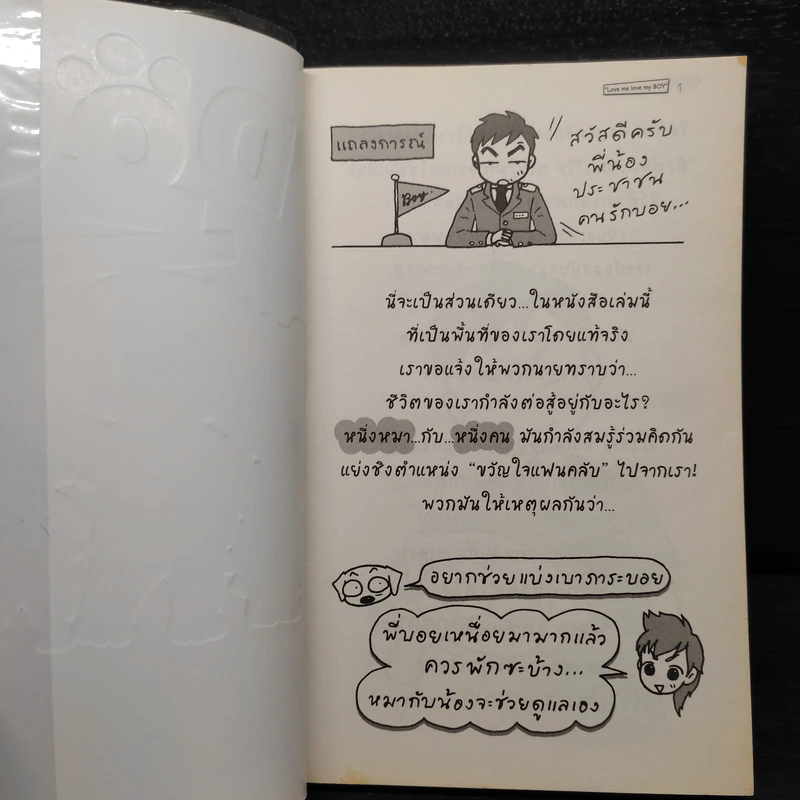 "Love me love my BOY" 1
แถลงการณ์
Boy..
สวัสดีครับ
พี่น้อง
ประชาชน
คนรักบอย...
นี่จะเป็นส่วนเดียว...ในหนังสือเล่มนี้
ที่เป็นพื้นที่ของเราโดยแท้จริง
เราขอแจ้งให้พวกนายทราบว่า...
ชีวิตของเรากำลังต่อสู้อยู่กับอะไร?
หนึ่งหมา...กับ...หนึ่งคน มันกำลังสมรู้ร่วมคิดกัน
แย่งชิงตำแหน่ง “ขวัญใจแฟนคลับ” ไปจากเรา!
พวกมันให้เหตุผลกันว่า...
อยากช่วยแบ่งเบาภาระบอย
พี่บอยเหนื่อยมามากแล้ว
ควรพักซะบ้าง...
หมากับน้องจะช่วยดูแลเอง